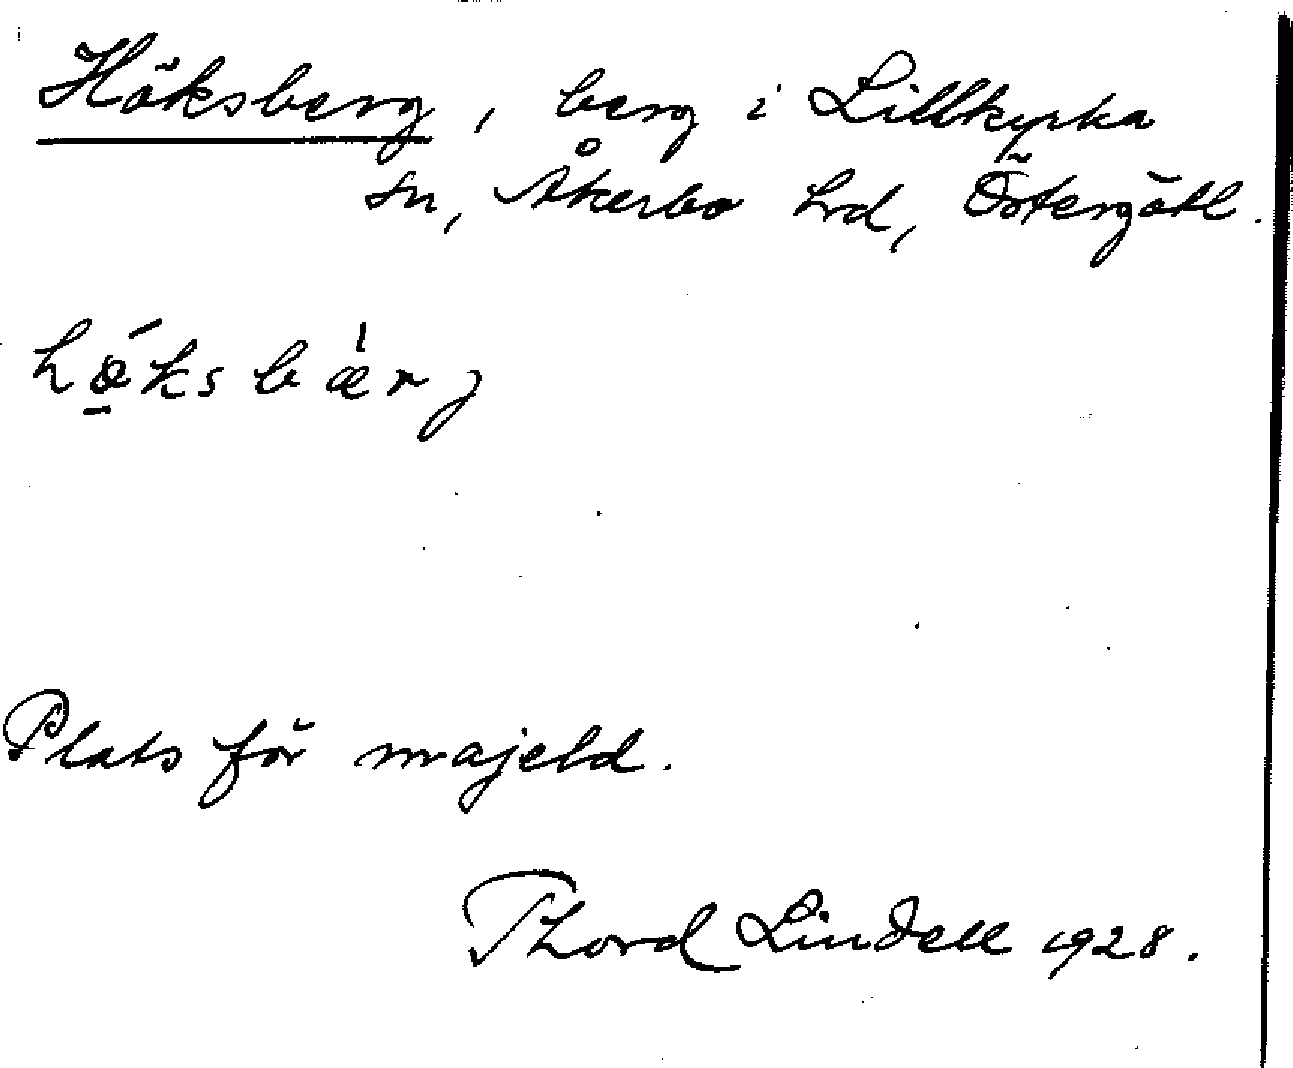 Höksberg, berg i Lillkyrka
sn, Åkerbo hrd, Östergötl.
hǿ̱ksbæ̀rj
Plats för majeld.
Thord Lindell 1928.